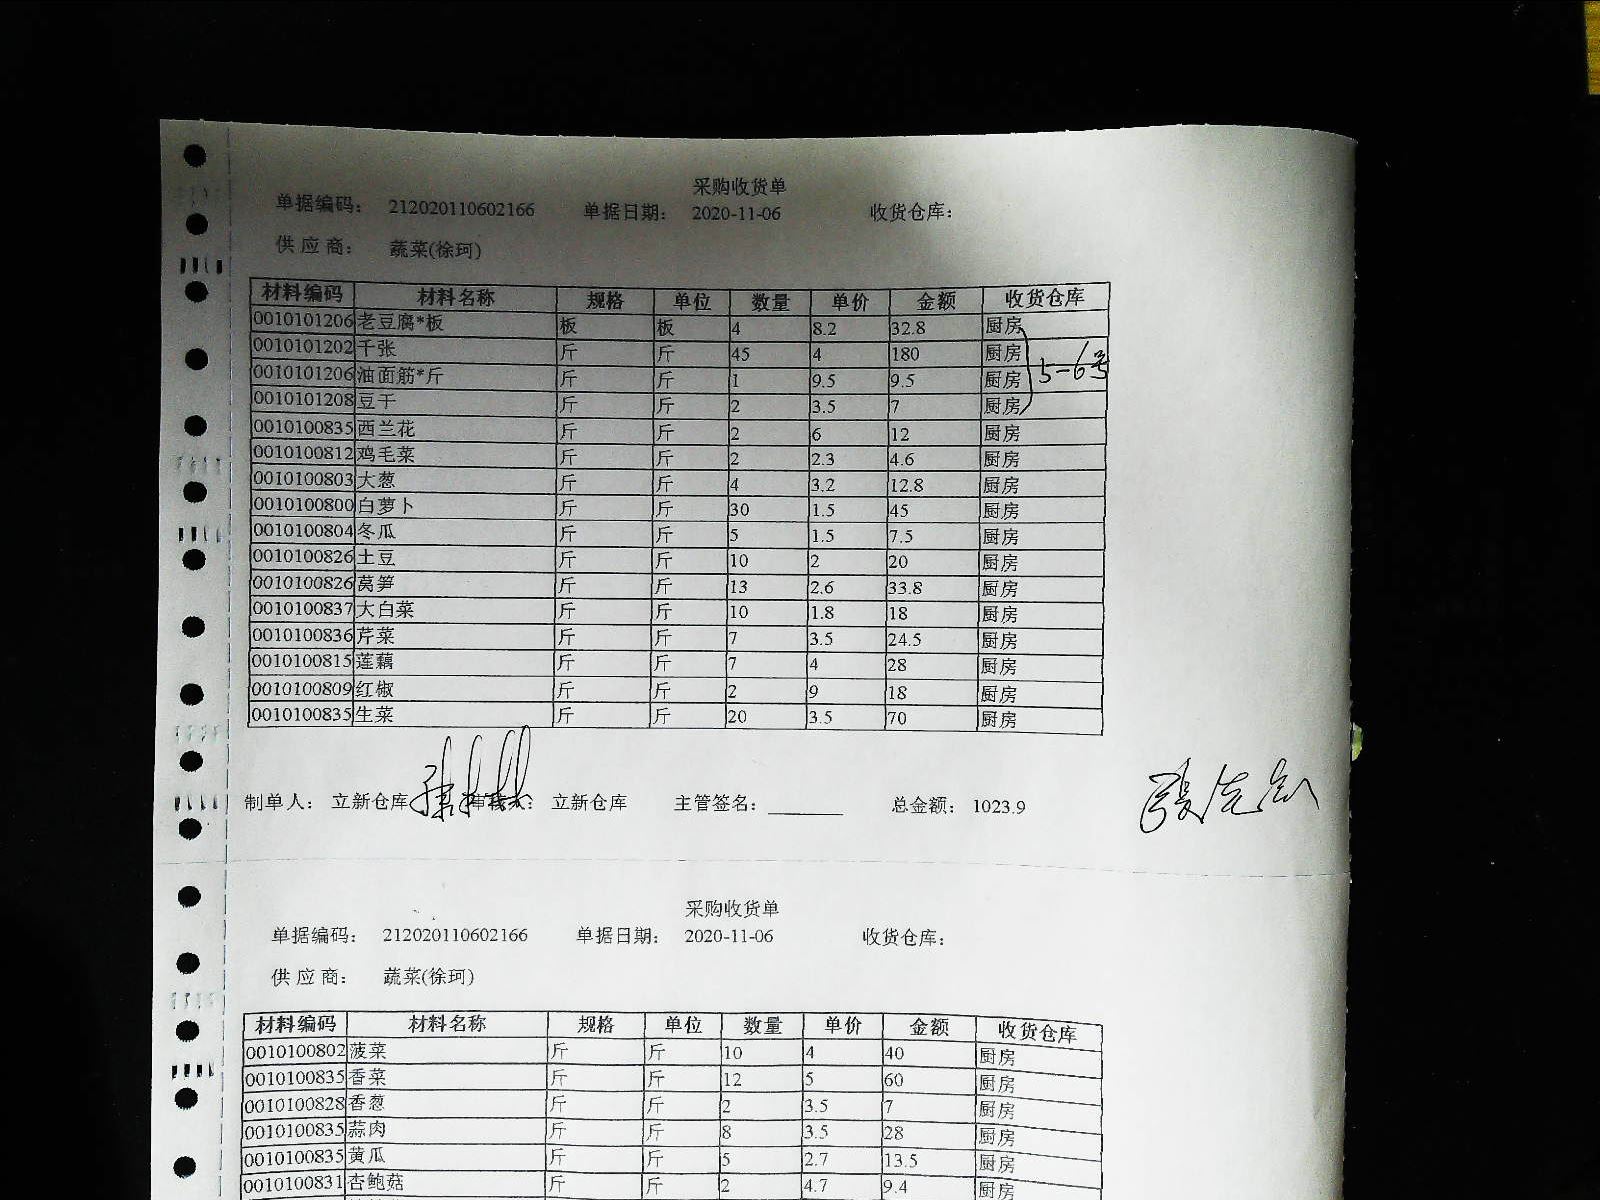 采购收货单
单据编码： 212020110602166 单据日期： 2020-11-06 收货仓库：
供 应 商： 蔬菜(徐珂)
材料编码 材料名称 规格 单位 数量 单价 金额 收货仓库
0010101206 老豆腐*板 板 板 4 8.2 32.8 厨房
0010101202 千张 斤 斤 45 4 180 厨房
0010101206 油面筋*斤 斤 斤 1 9.5 9.5 厨房
5-6号
0010101208 豆干 斤 斤 2 3.5 7 厨房
0010100835 西兰花 斤 斤 2 6 12 厨房
0010100812 鸡毛菜 斤 斤 2 2.3 4.6 厨房
0010100803 大葱 斤 斤 4 3.2 12.8 厨房
0010100800 白萝卜 斤 斤 30 1.5 45 厨房
0010100804 冬瓜 斤 斤 5 1.5 7.5 厨房
0010100826 土豆 斤 斤 10 2 20 厨房
0010100826 莴笋 斤 斤 13 2.6 33.8 厨房
0010100837 大白菜 斤 斤 10 1.8 18 厨房
0010100836 芹菜 斤 斤 7 3.5 24.5 厨房
0010100815 莲藕 斤 斤 7 4 28 厨房
0010100809 红椒 斤 斤 2 9 18 厨房
0010100835 生菜 斤 斤 20 3.5 70 厨房
制单人： 立新仓库 审核人： 立新仓库 主管签名：______ 总金额： 1023.9
采购收货单
单据编码： 212020110602166 单据日期： 2020-11-06 收货仓库：
供 应 商： 蔬菜(徐珂)
材料编码 材料名称 规格 单位 数量 单价 金额 收货仓库
0010100802 菠菜 斤 斤 10 4 40 厨房
0010100835 香菜 斤 斤 12 5 60 厨房
0010100828 香葱 斤 斤 2 3.5 7 厨房
0010100835 蒜肉 斤 斤 8 3.5 28 厨房
0010100835 黄瓜 斤 斤 5 2.7 13.5 厨房
0010100831 杏鲍菇 斤 斤 2 4.7 9.4 厨房